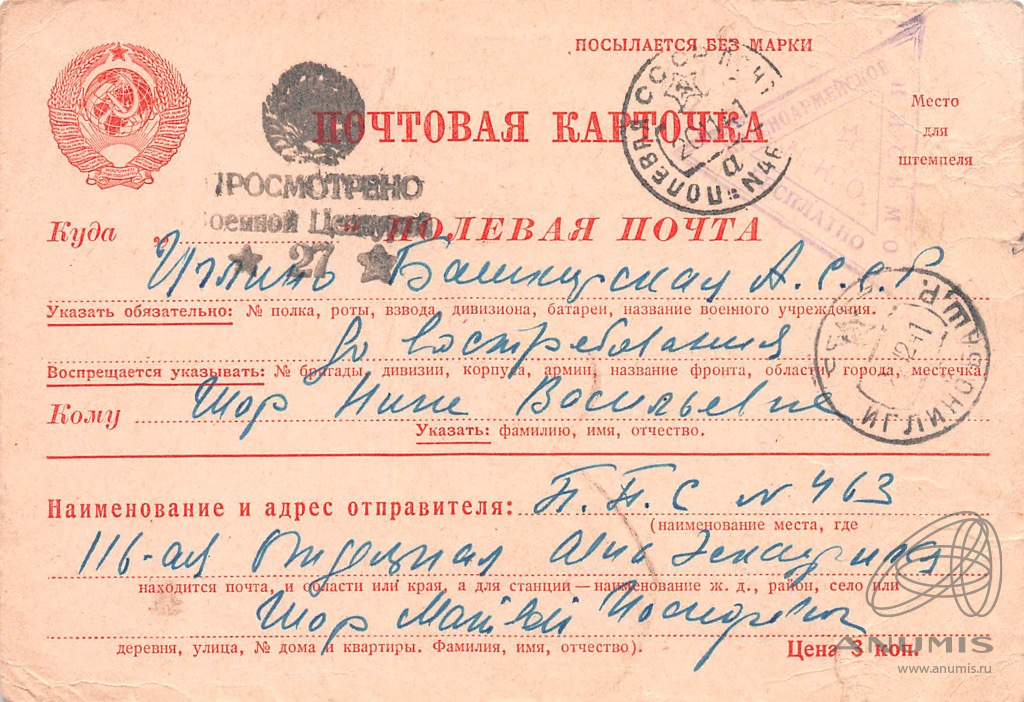 ПОСЫЛАЕТСЯ БЕЗ МАРКИ
ПОЧТОВАЯ КАРТОЧКА
Место
для
штемпеля
КРАСНОАРМЕЙСКОЕ
ПИСЬМО
БЕСПЛАТНО
СССР
ПОЛЕВАЯ
а
ПРОСМОТРЕНО
Военной Цензурой
27
Куда „ ПОЛЕВАЯ ПОЧТА
Иглино Башкирская А.С.С.Р
Указать обязательно: № полка, роты, взвода, дивизиона, батареи, название военного учреждения.
до востребования
Воспрещается указывать: № бригады, дивизии, корпуса, армии, название фронта, области, города, местечка.
Кому Шор Нине Васильевне
Указать: фамилию, имя, отчество.
ИГЛИНО БАШ.
Наименование и адрес отправителя: П.П.С N 463
(наименование места, где
116-ая Отдельная Авиа Эскадрилья
находится почта, и области или края, а для станции — наименование ж. д., район, село или
Шор
деревня, улица, № дома и квартиры. Фамилия, имя, отчество).
Цена 3 коп.
ANUMIS
www.anumis.ru